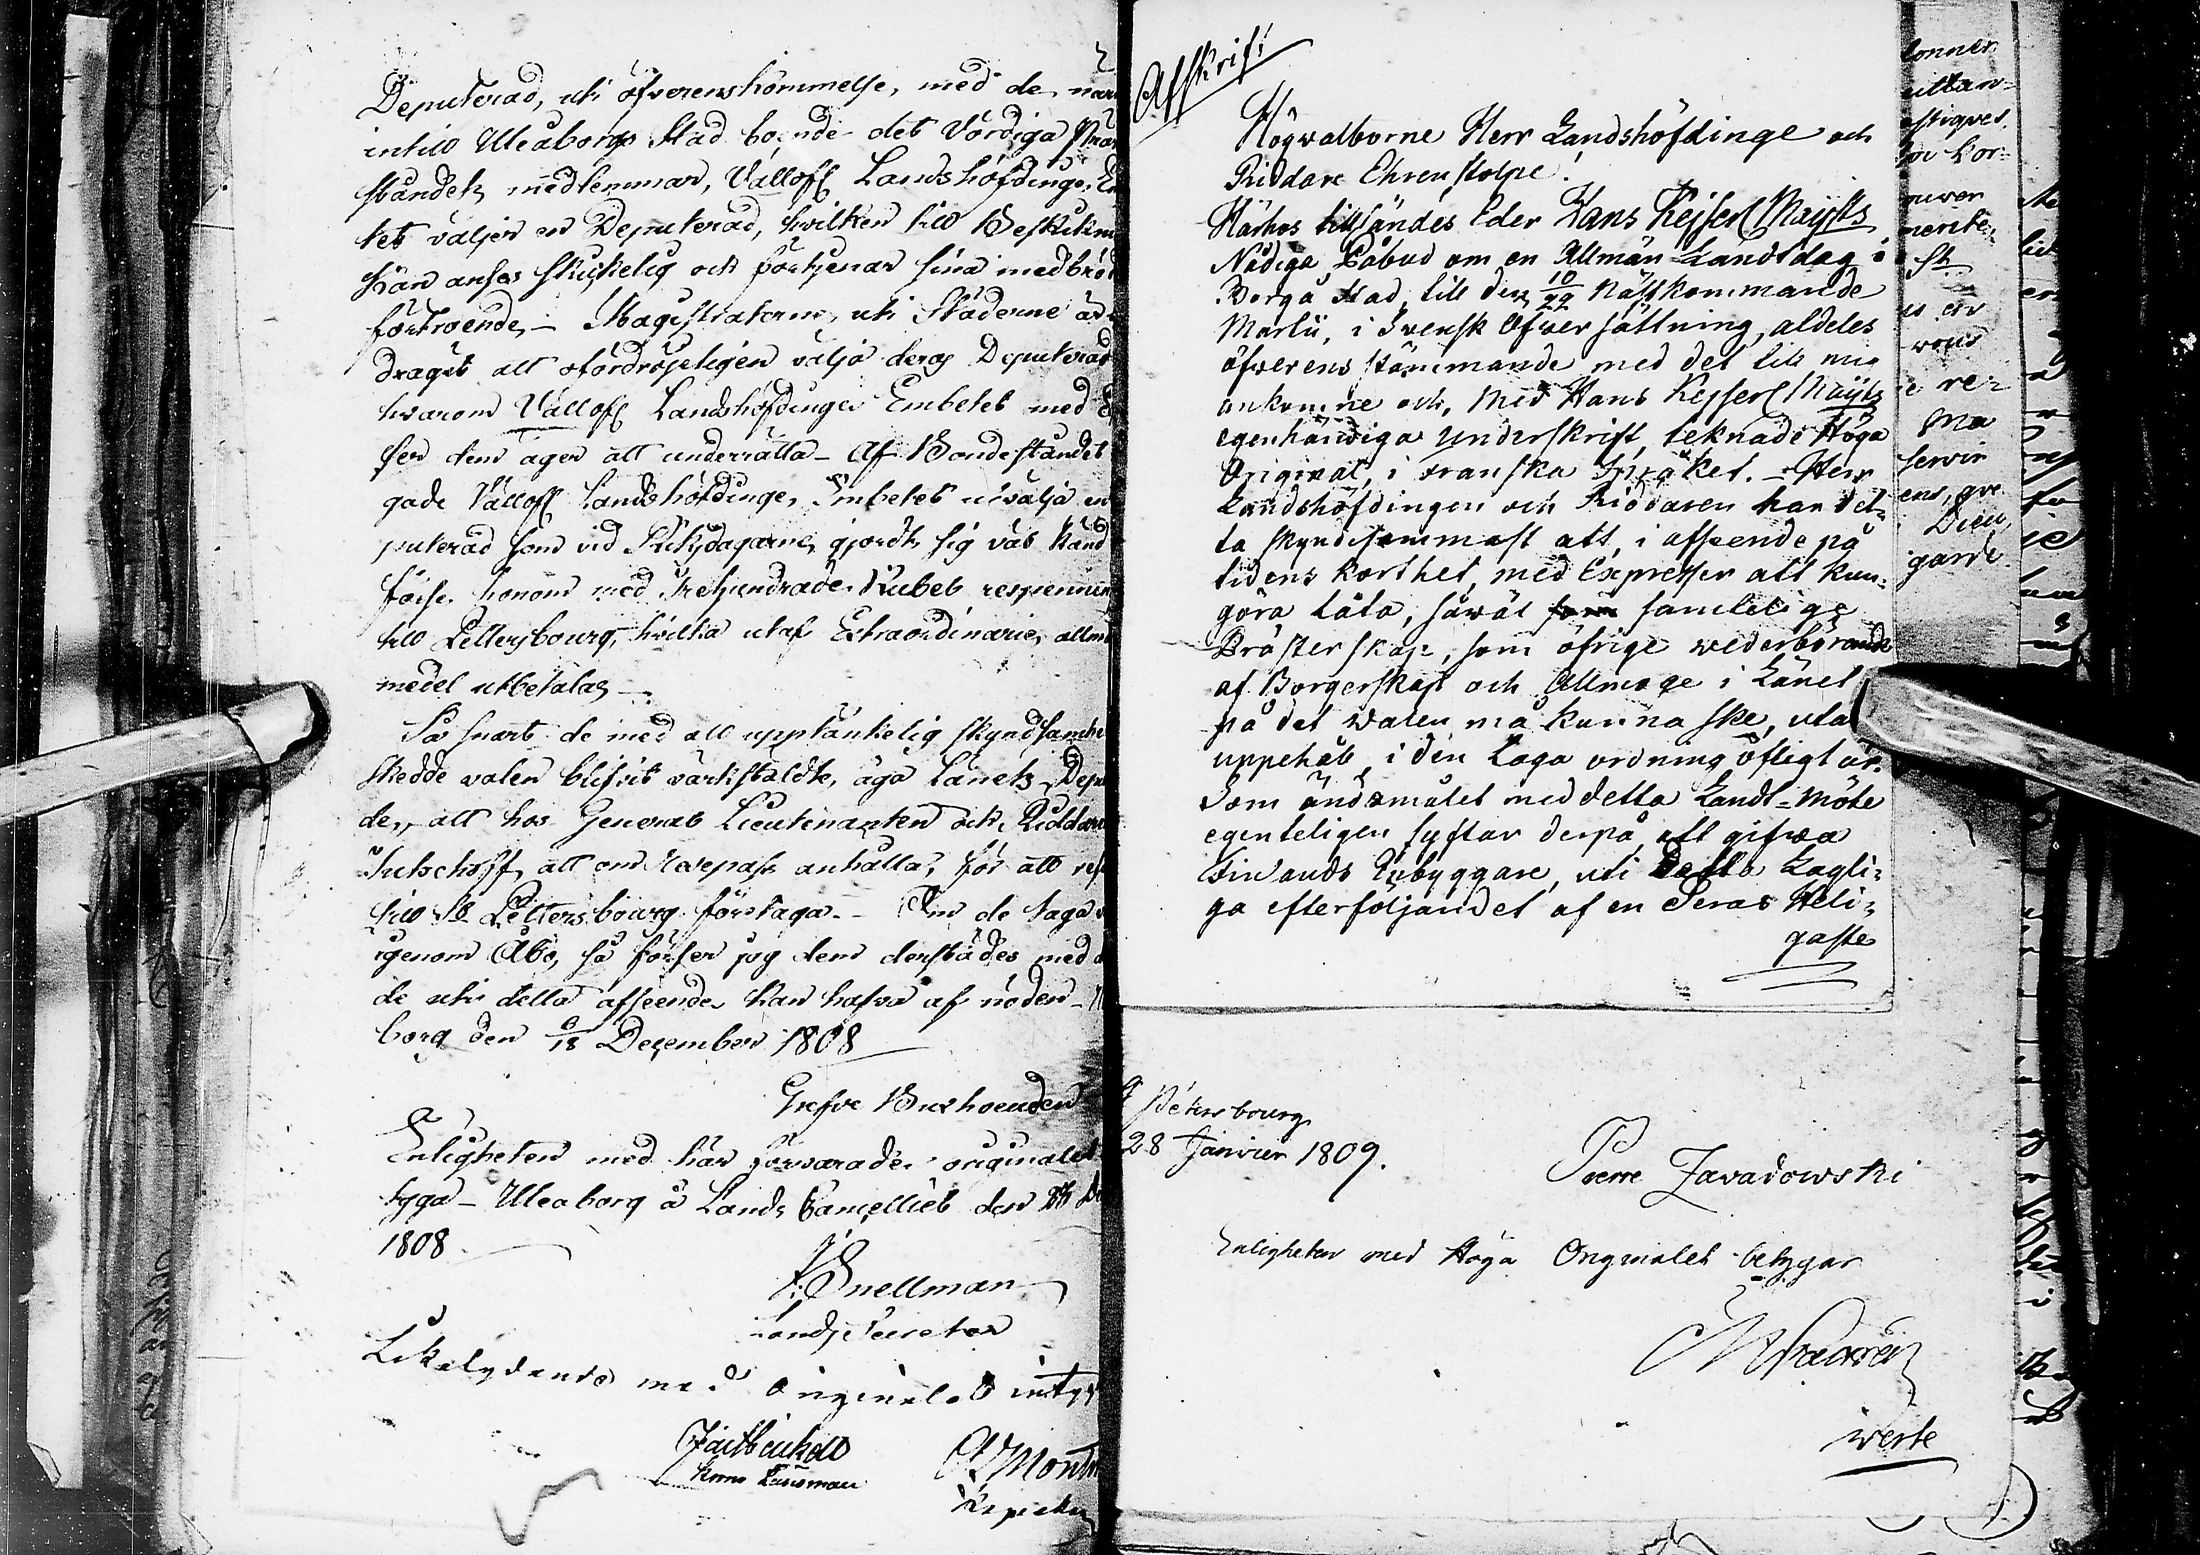 Deputerad, uti öfverenskommelse, med de när
intill Uleåborgs Stad boende det Vördiga Prä
ståndets medlemmar, Vällofl Landshöfdinge, Em
tet väljer en Deputerad, hvilken till
han anses skickelig och förtjenar sina medbröd
förtroende, – Magistraterne, uti Städerne är
draget att ofördröjeligen välja deras Deputerad
hvarom Vällofl Landshöfdinge Embetet med
ser dem äger att underrätta – Af Bondeståndet
gade Vällofl Landshöfdinge, Embetet utvälja en
puterad som vid Riksdagarne, gjordt sig väl känd
förse honom med Trehundrade Rubel respennin
till Pettersbourg, hvilka utaf Extraordinarie, allm
medel utbetalas –
Så snart de med all upptänkelig skyndsamhe
skedde valen blifvit värkstäldte, äga Länets Depu
de, att hos General Lieutenanten och Riddare
att om Resepass anhålla, för att res
till St Pettersbourg företaga. – Om de taga
igenom Åbo, så förser jag dem derstädes med
de uti detta afseende kan hafva af nöden –
borg den 6/18 December 1808
Grefve Buxhoevden
Enligheten med här förvarade originalet
tyga – Uleåborg å Lands Cancelliet den
1808
Snellman
Landssecreter
Likalydande med Originalet intyg
Afskrift
Högwälborne Herr Landshöfdinge och
Riddare Ehrenstolpe!
Härhos tillsändes Eder Hans Kejserl Maijts
Nådiga Påbud om en Allmän Landtdag i
Borgå Stad, till den 10/22 nästkommande
Martii, i Svensk Öfwersättning, aldeles
öfverensstämmande med det till mig
ankomne och, med Hans Kejserl Maijts
egenhändiga Underskrift, teknade Höga
Original, i Franska Språket. – Herr
Landshöfdingen och Riddaren har det-
ta skyndesammast att, i afseende på
tidens korthet, med Expresser att kun-
göra låta, såwäl samtelige
Prästerskap, som öfrige wederbörande
af Borgerskap och Allmoge i Länet
på det walen må kunna ske, utan
uppehåll, i den Laga ordning öfligt är.
Som ändamålet med detta Landt-möte
egenteligen syftar derpå att gifwa
Finlands Inbyggare, uti detta Lagli-
ga efterföljandet af en Deras Heli-
gaste
Pétersbourg
28 Janvier 1809.
Pierre Zavadowski
Enligheten med Höga Originalet betygar
werte
tonner
ne re-
Ma
servir
ens, gre
Dieu,
garde.